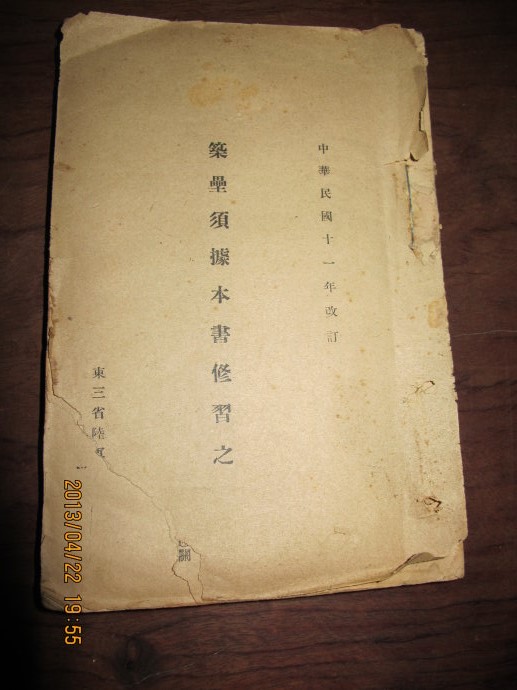 中華民國十一年改訂
築壘須據本書修習之
東三省陸軍
2013/04/22 19:55